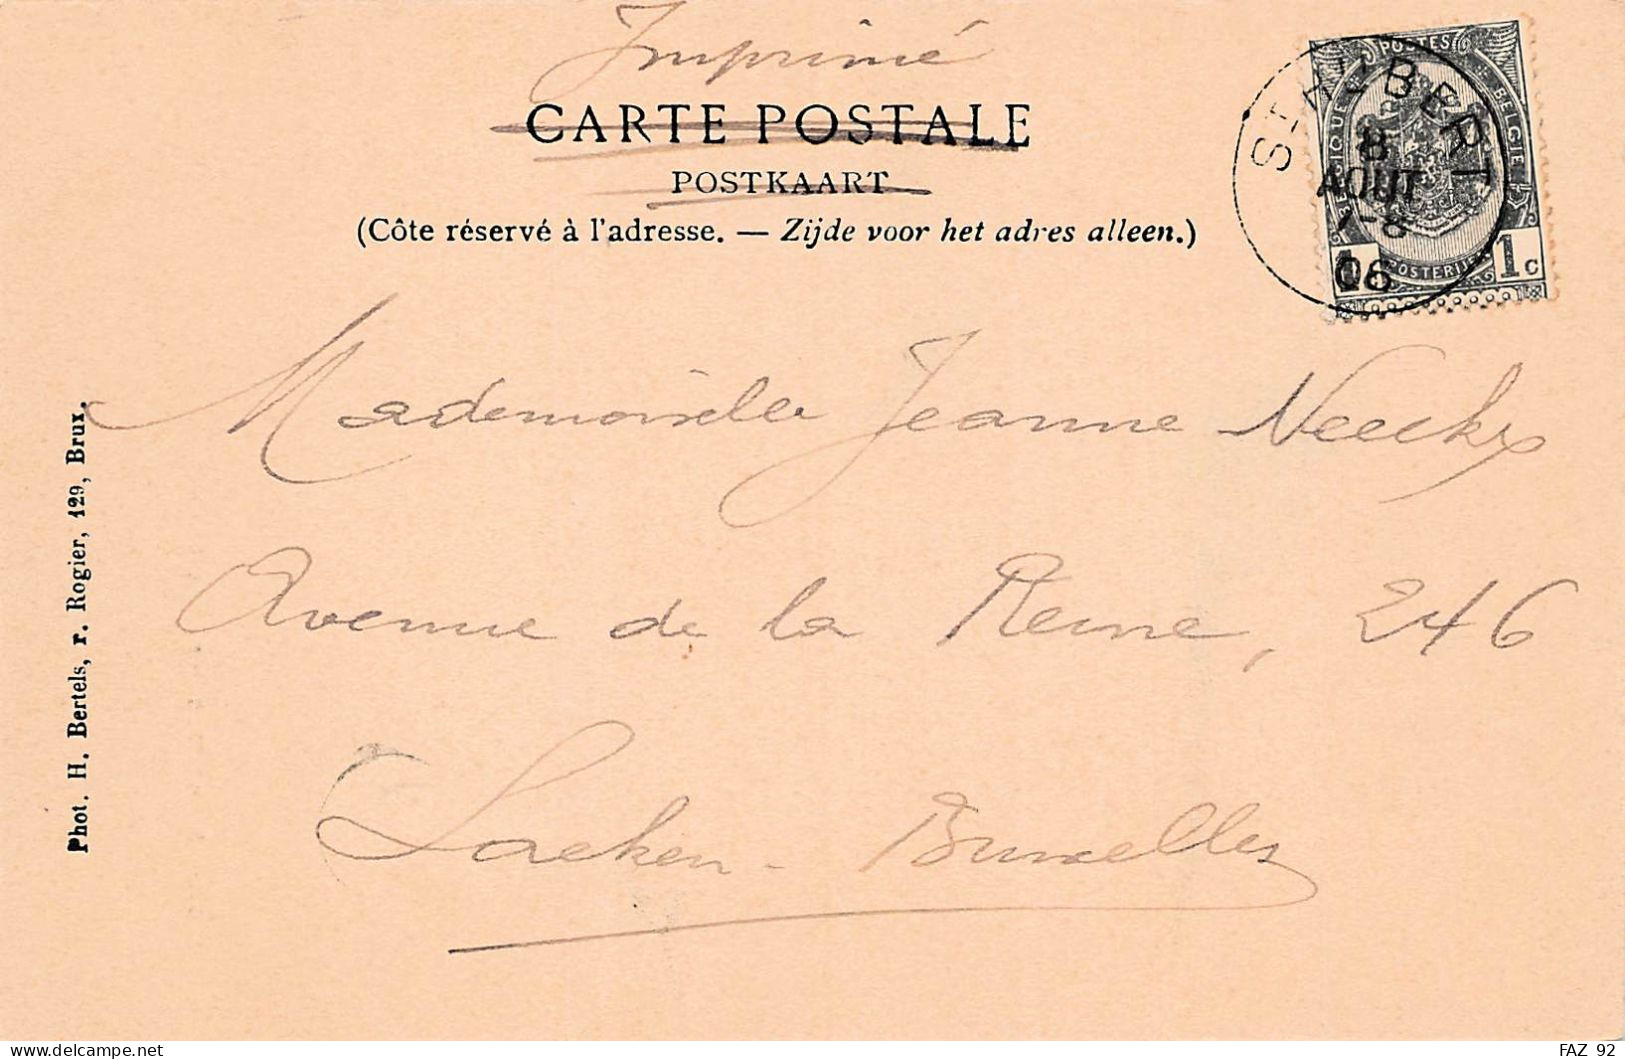 Imprimé
CARTE POSTALE
POSTKAART
(Côte réservé à l'adresse. — Zijde voor het adres alleen.)
ST-HUBERT
8
AOUT
7-8
06
POSTES
BELGIQUE
BELGIE
POSTERIJEN
1 1c
Mademoiselle Jeanne Neeckx
Avenue de la Reine, 246
Laeken - Bruxelles
Phot. H. Bertels, r. Rogier, 129, Brux.
FAZ 92